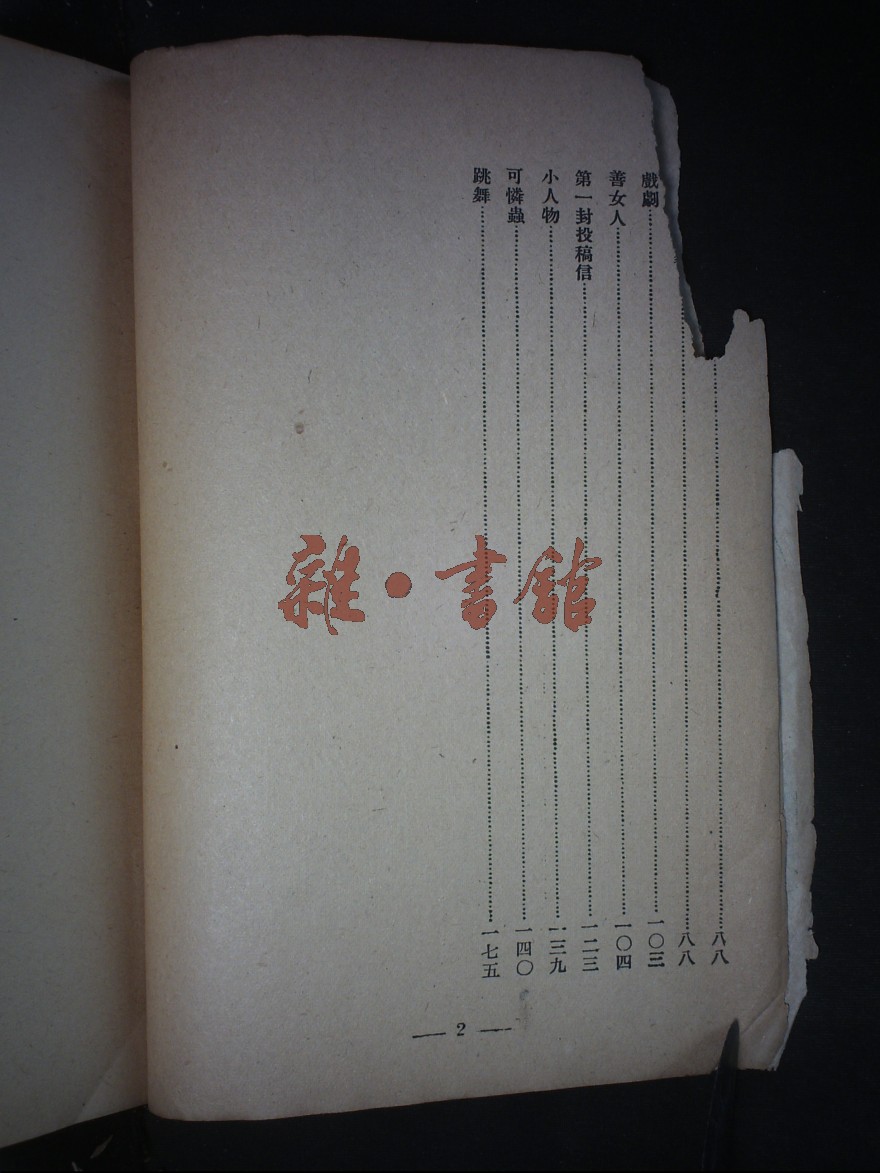 八八
八八
戲劇一〇三
善女人一〇四
第一封投稿信一二三
小人物一三九
可憐蟲一四〇
跳舞一七五
— 2 —
雜・書館